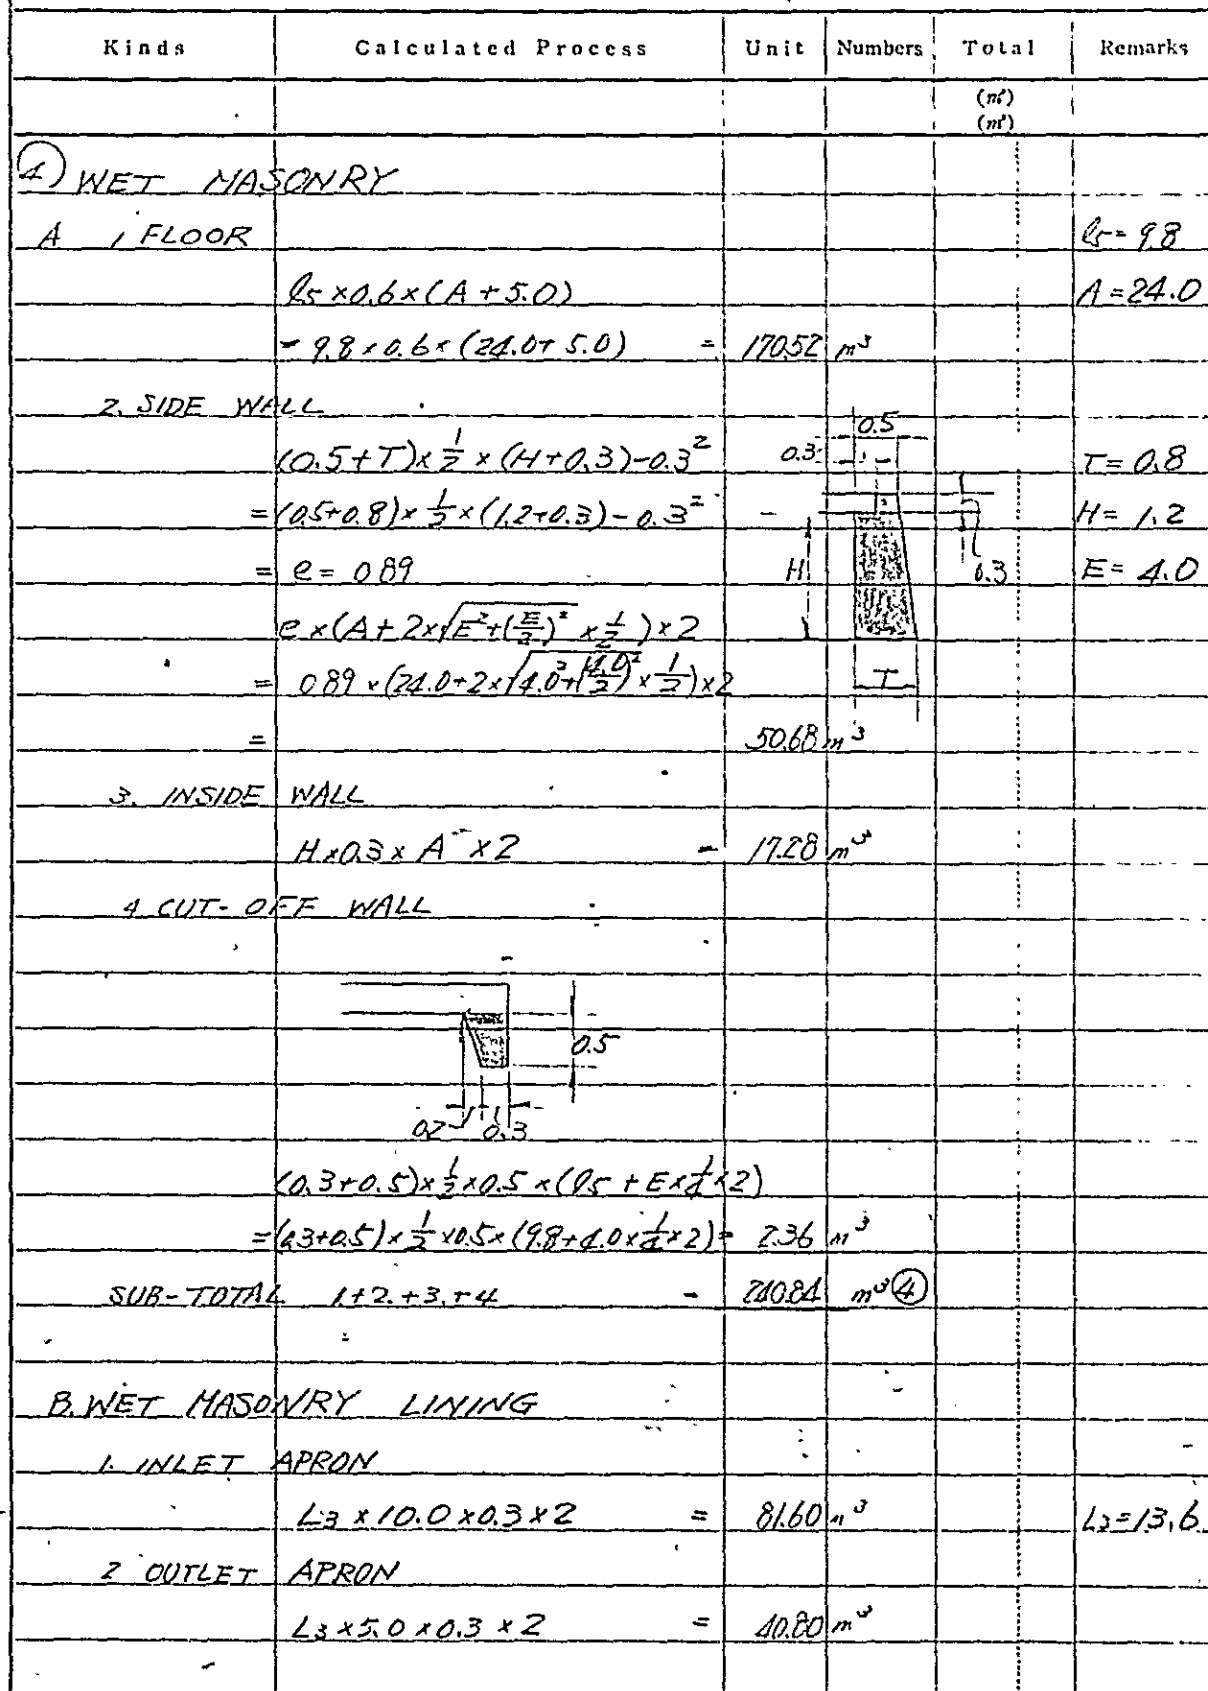 Kinds Calculated Process Unit Numbers Total Remarks
(m²)
(m³)
④ WET MASONRY
A 1 FLOOR l5= 9.8
l5 x 0.6 x (A + 5.0) A = 24.0
= 9.8 x 0.6 x (24.0 + 5.0) = 170.52 m³
2. SIDE WALL
0.5
(0.5+T) x 1/2 x (H+0.3) - 0.3² 0.3 T= 0.8
= (0.5+0.8) x 1/2 x (1.2+0.3) - 0.3² H= 1.2
= e = 0.89 H 0.3 E= 4.0
e x (A + 2 x √(E²+(E/2)²) x 1/2) x 2
= 0.89 x (24.0 + 2 x √(4.0²+(4.0/2)²) x 1/2) x 2 T
= 50.68 m³
3. INSIDE WALL
H x 0.3 x A x 2 = 17.28 m³
4 CUT-OFF WALL
0.5
0.2 0.3
(0.3+0.5) x 1/2 x 0.5 x (l5 + E x 1/4 x 2)
= (0.3+0.5) x 1/2 x 0.5 x (9.8 + 4.0 x 1/4 x 2) = 2.36 m³
SUB-TOTAL 1+2.+3.+4 = 240.84 m³ ④
B. WET MASONRY LINING
1. INLET APRON
L3 x 10.0 x 0.3 x 2 = 81.60 m³ L3=13.6
2 OUTLET APRON
L3 x 5.0 x 0.3 x 2 = 40.80 m³